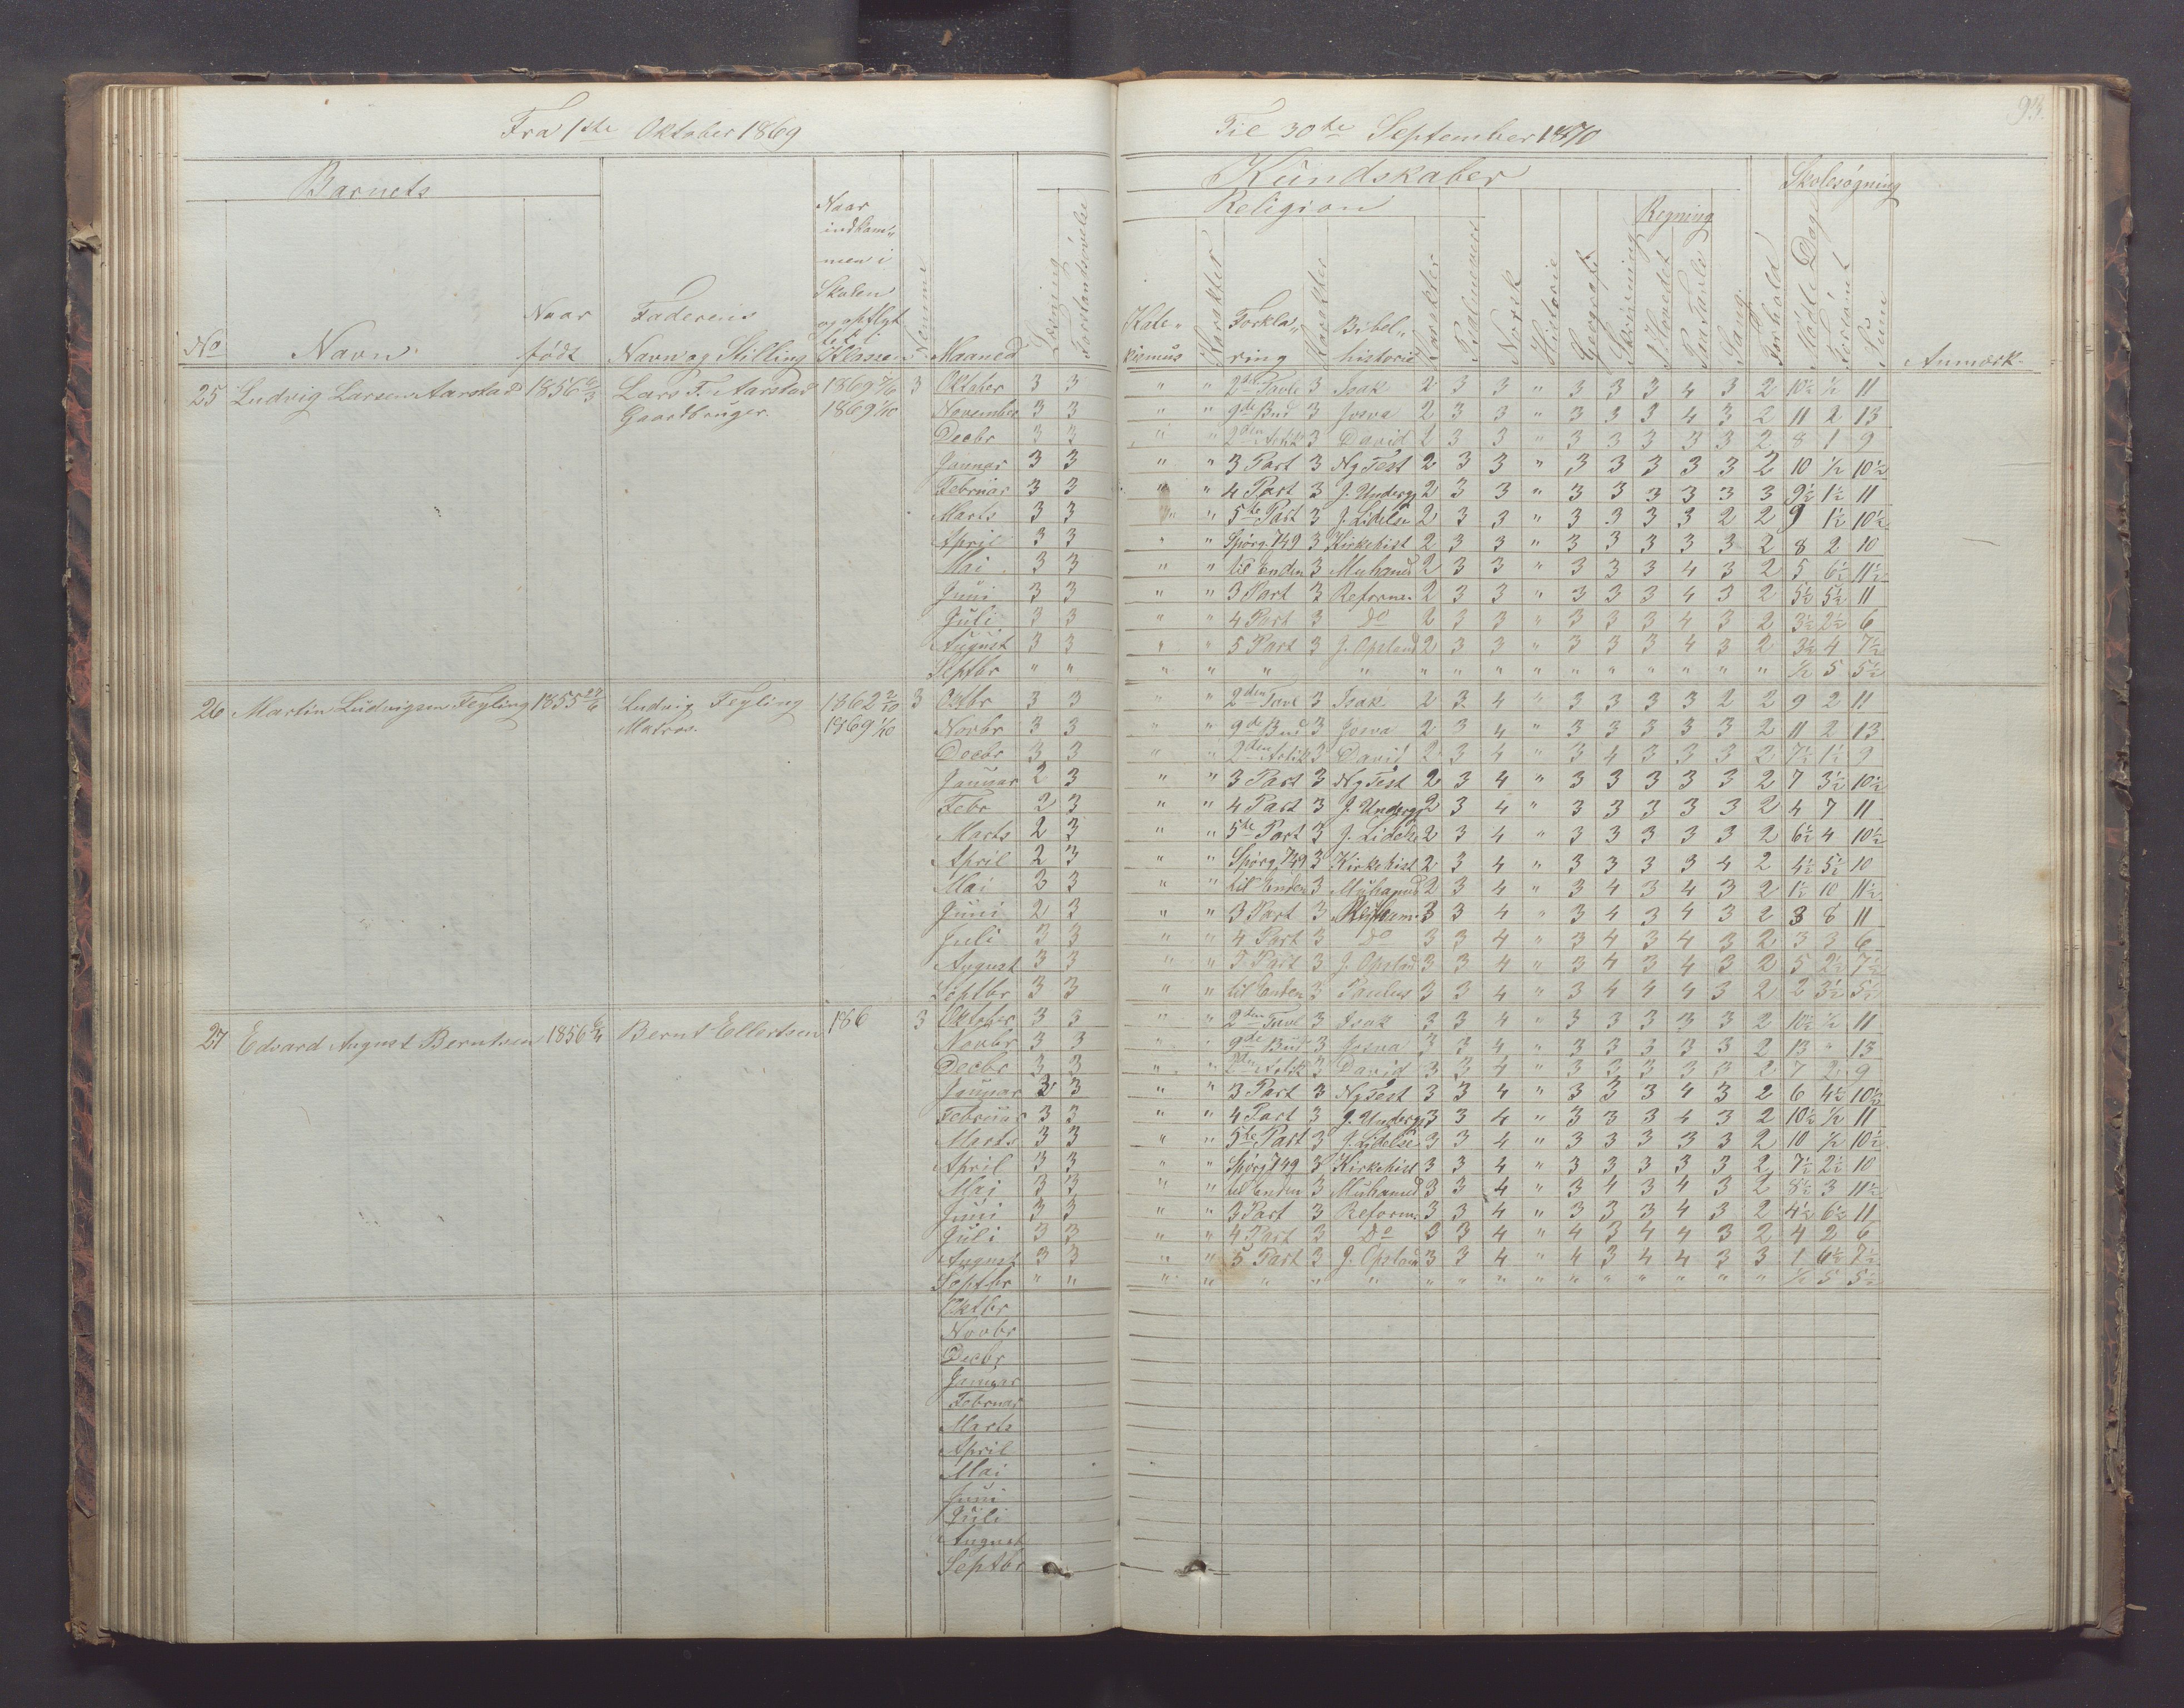 Fra 1ste Oktober 1869
Til 30te September 1870
93.
Barnets
No
Navn.
Naar født
Faderens Navn og Stilling
Naar indkommen i Skolen og opflyttet i Klasse
Maaned
Læsning
Forstandsøvelse
Kundskaber
Religion
Katekismus
Karakter
Forklaring
Karakter
Bibelhistorie
Karakter
Psalmevers
Norsk
Historie
Geografi
Skrivning
Regning
i Hovedet
Paa Tavle
Sang.
Forhold
Skolesøgning
Mødte Dage
Forsømt
Sum
Anmærk.
25 Ludvig Larsen Aarstad 1856 Lars T. Aarstad 1869 3 Oktober 3 3 " " 2den Tavle 3 Isak 2 3 3 " 3 3 3 4 3 2 10½ ½ 11
Gaardbruger. 1869 1/10 November 3 3 " " 9de Bud 3 Josva 2 3 3 " 3 3 3 4 3 2 11 2 13
Decbr 3 3 " " 2den Artik 3 David 2 3 3 " 3 3 3 3 3 2 8 1 9
Januar 3 3 " " 3 Part 3 Ny Test 2 3 3 " 3 3 3 3 3 2 10 ½ 10½
Februar 3 3 " " 4 Part 3 J. Undergj 2 3 3 " 3 3 3 3 3 3 9½ 1½ 11
Marts 3 3 " " 5te Part 3 J. Lidelse 2 3 3 " 3 3 3 3 2 2 9 1½ 10½
April 3 3 " " Spørg. 749 3 Kirkehist 2 3 3 " 3 3 3 3 3 2 8 2 10
Mai 3 3 " " til Enden 3 Muhamed 2 3 3 " 3 3 3 4 3 2 5 6½ 11½
Juni 3 3 " " 3 Part 3 Reforma. 2 3 3 " 3 3 3 4 3 2 5½ 5½ 11
Juli 3 3 " " 4 Part 3 Do 2 3 3 " 3 3 3 4 3 2 3½ 2½ 6
August 3 3 " " 5 Part 3 J. Opstand 2 3 3 " 3 3 3 4 3 2 3½ 4 7½
Septbr " " " " " " " " " " " " " " " " " ½ 5 5½
26 Martin Ludvigsen Fegling 1855 27/6 Ludvig Fegling 1862 2/10 3 Oktbr 3 3 " " 2den Tavl 3 Isak 2 3 4 " 3 3 3 3 2 2 9 2 11
Matros. 1869 1/10 Novbr 3 3 " " 9de Bud 3 Josva 2 3 4 " 3 3 3 3 3 2 11 2 13
Decbr 3 3 " " 2den Artik 3 David 2 3 4 " 3 4 3 3 3 2 7½ 1½ 9
Januar 2 3 " " 3 Part 3 Ny Test 2 3 4 " 3 3 3 3 3 2 7 3½ 10½
Febr 2 3 " " 4 Part 3 J. Undergj 2 3 4 " 3 3 3 3 3 2 4 7 11
Marts 2 3 " " 5te Part 3 J. Lidelse 2 3 4 " 3 3 3 3 3 2 6½ 4 10½
April 2 3 " " Spørg. 749 3 Kirkehist 2 3 4 " 3 3 3 3 4 2 4½ 5½ 10
Mai 2 3 " " til Enden 3 Muhamed 2 3 4 " 3 4 3 4 3 2 1½ 10 11½
Juni 2 3 " " 3 Part 3 3 3 4 " 3 4 3 4 3 2 3 8 11
Juli 3 3 " " 4 Part 3 Do 3 3 4 " 3 4 3 4 3 2 3 3 6
August 3 3 " " 5 Part 3 J. Opstad 3 3 4 " 3 4 3 4 3 2 5 2½ 7½
Septbr 3 3 " " til Enden 3 Paulus 3 3 4 " 3 4 4 4 3 2 2 3½ 5½
27 Edvard August Berntsen 1856 Bernt Ellertsen 186 3 Oktober 3 3 " " 2den Tavl 3 Isak 3 3 4 " 3 3 3 3 3 2 10½ ½ 11
Novbr 3 3 " " 9de Bud 3 Josva 3 3 4 " 3 3 3 3 3 2 13 " 13
Decbr 3 3 " " 2den Artik 3 David 3 3 4 " 3 3 3 3 3 2 7 2 9
Januar 3 3 " " 3 Part 3 Ny Test 3 3 4 " 3 3 3 4 3 2 6 4½ 10½
Februar 3 3 " " 4 Part 3 J. Undergj 3 3 4 " 3 3 3 4 3 2 10½ ½ 11
Marts 3 3 " " 5te Part 3 J. Lidelse 3 3 4 " 3 3 3 3 3 2 10 ½ 10½
April 3 3 " " Spørg 749 3 Kirkehist 3 3 4 " 3 3 3 3 3 2 7½ 2½ 10
Mai 3 3 " " til Enden 3 Muhamed 3 3 4 " 3 4 3 4 3 2 8½ 3 11½
Juni 3 3 " " 3 Part 3 Reform. 3 3 4 " 3 3 3 4 3 2 4½ 6½ 11
Juli 3 3 " " 4 Part 3 Do 3 3 4 " 4 3 4 4 3 2 4 2 6
August 3 3 " " 5 Part 3 J. Opstand 3 3 4 " 4 3 4 4 3 3 1 6½ 7½
Septbr " " " " " " " " " " " " " " " " " ½ 5 5½
Oktbr
Novbr
Decbr
Januar
Februar
Marts
April
Mai
Juni
Juli
August
Septbr